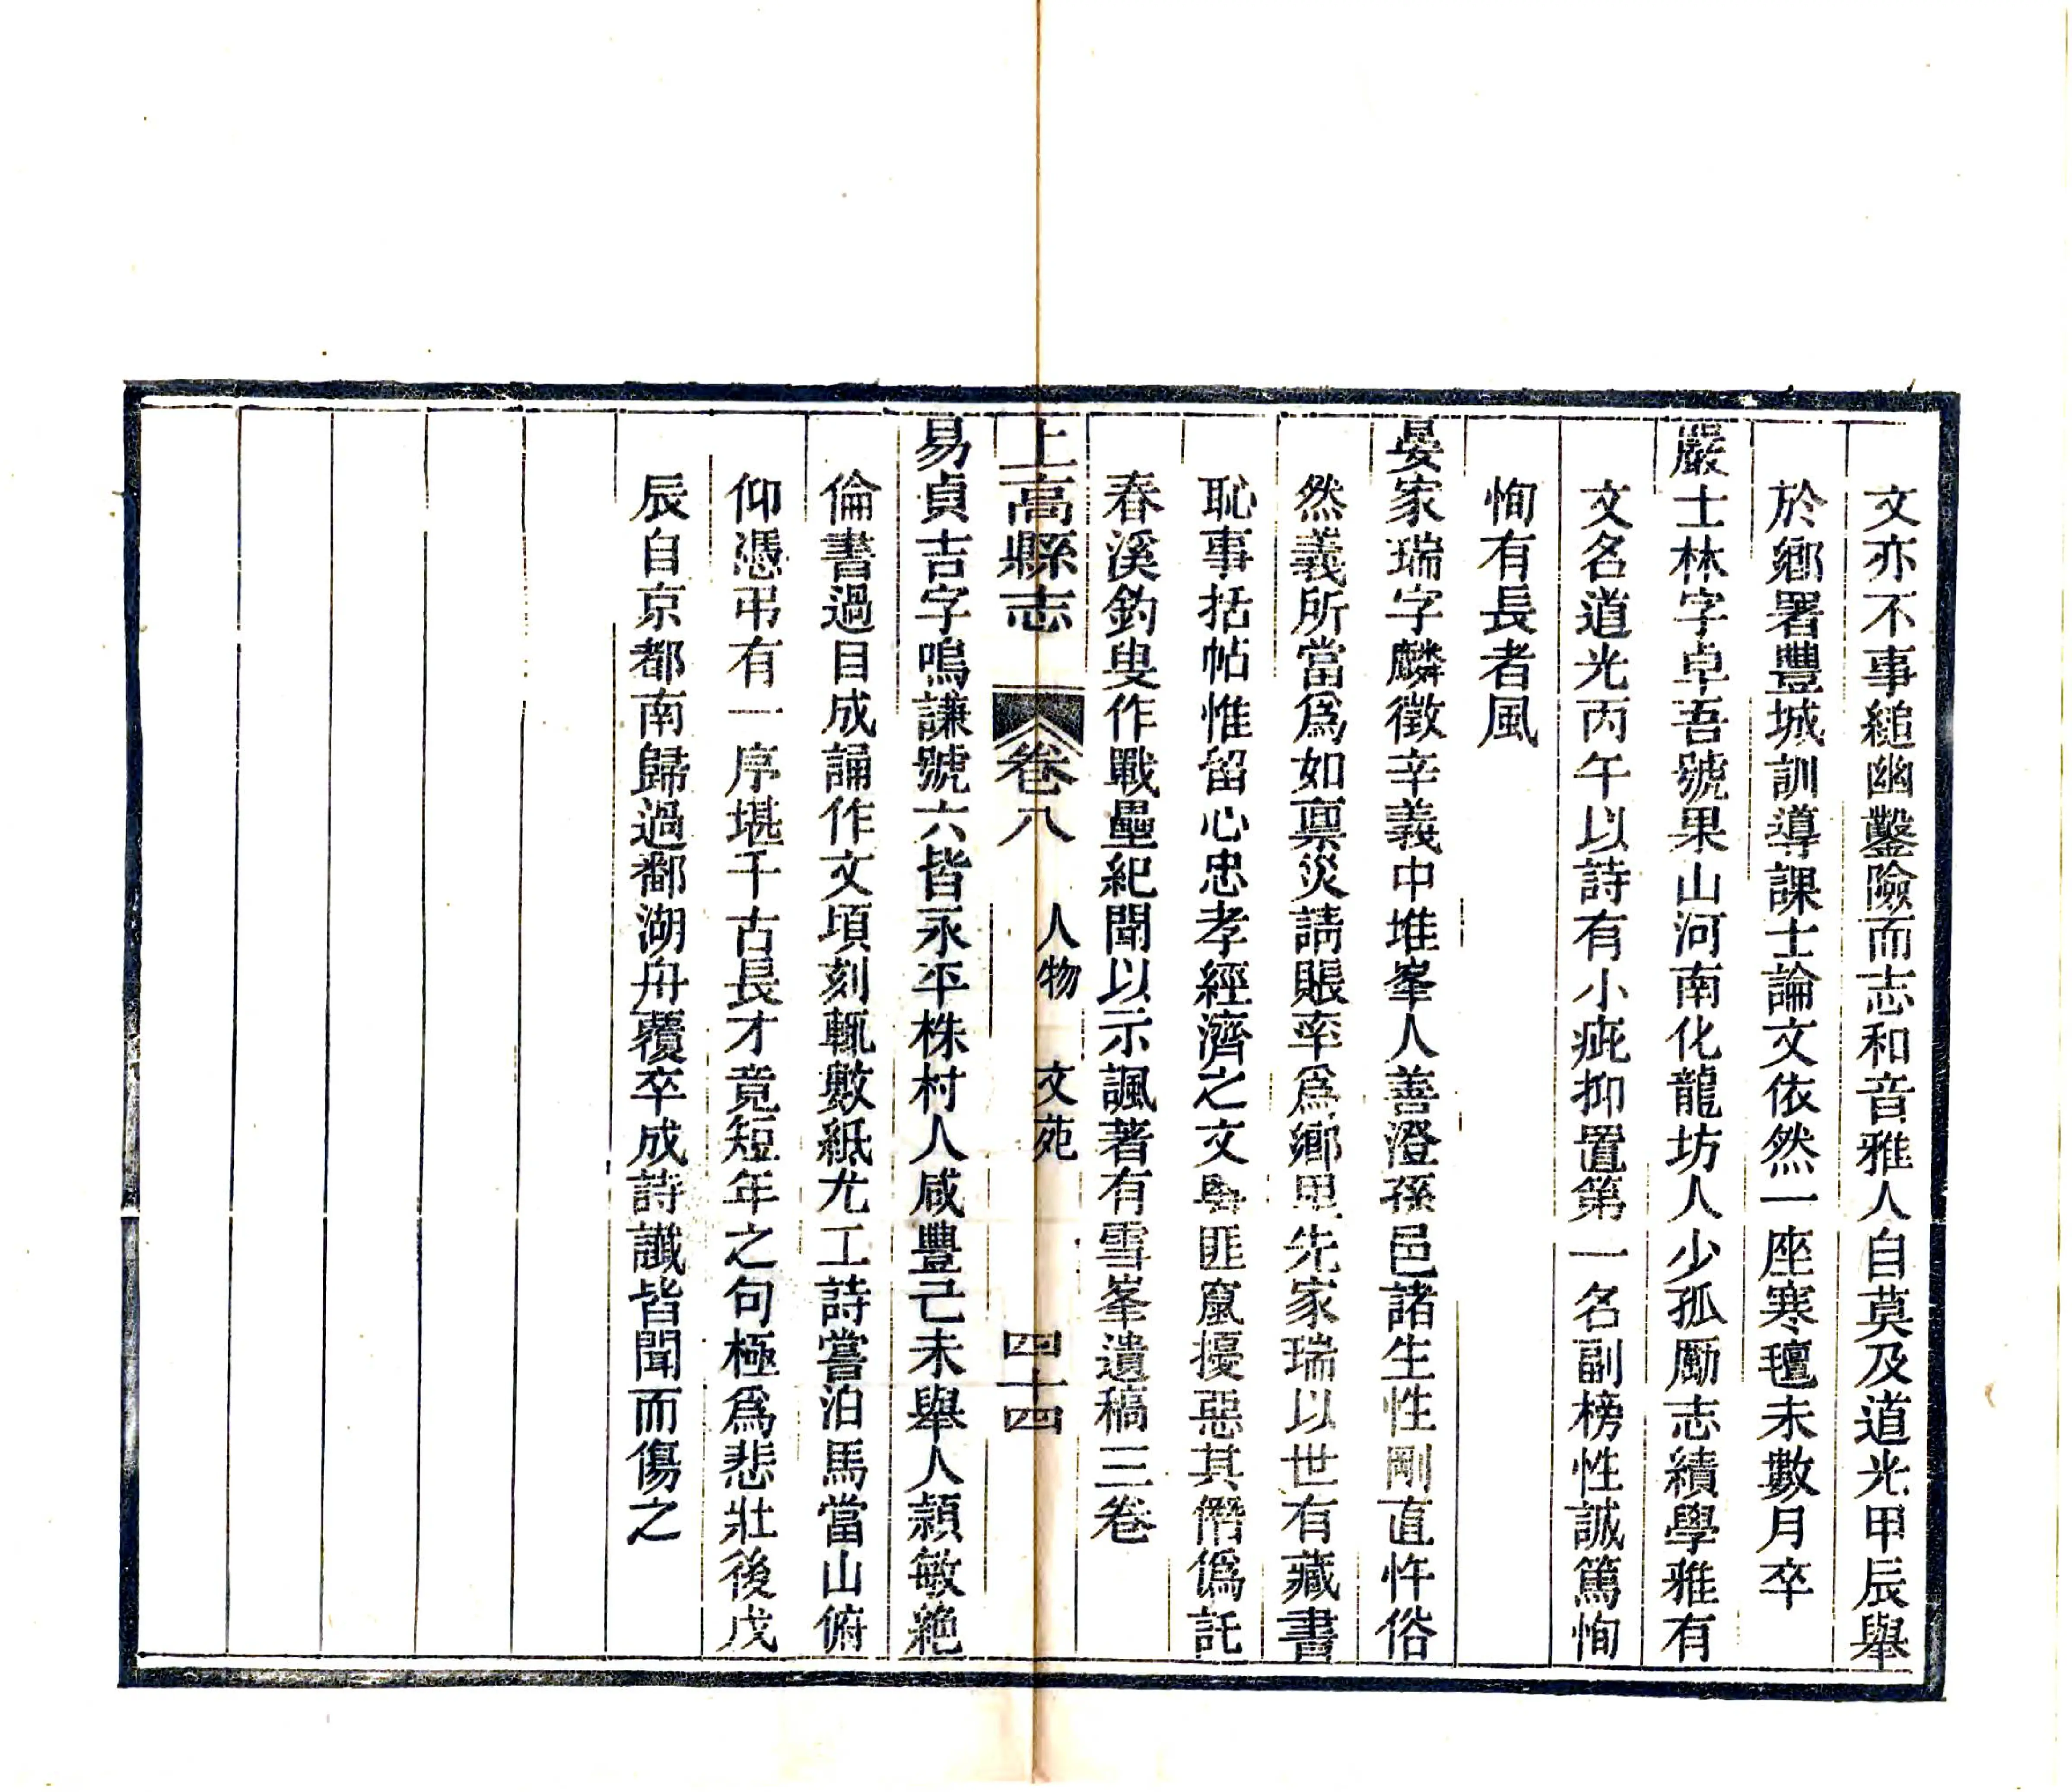 文亦不事縋幽鑿險而志和音雅人自莫及道光甲辰舉
於鄉署豐城訓導課士論文依然一座寒氊未數月卒
嚴士林字卓吾號果山河南化龍坊人少孤勵志績學雅有
文名道光丙午以詩有小疵抑置第一名副榜性誠篤恂
恂有長者風
晏家瑞字麟徵辛義中堆峯人善澄孫邑諸生性剛直忤俗
然義所當爲如禀災請賬率爲鄉里先家瑞以世有藏書
恥事括帖惟留心忠孝經濟之文粵匪竄擾惡其僭僞託
春溪釣叟作戰壘紀聞以示諷著有雪峯遺稿三卷
上高縣志 卷八 人物 文苑 四十四
易貞吉字鳴謙號六皆永平株村人咸豐己未舉人頴敏絶
倫書過目成誦作文頃刻輒數紙尤工詩嘗泊馬當山俯
仰憑弔有一序堪千古長才竟短年之句極爲悲壯後戊
辰自京都南歸過鄱湖舟覆卒成詩讖皆聞而傷之